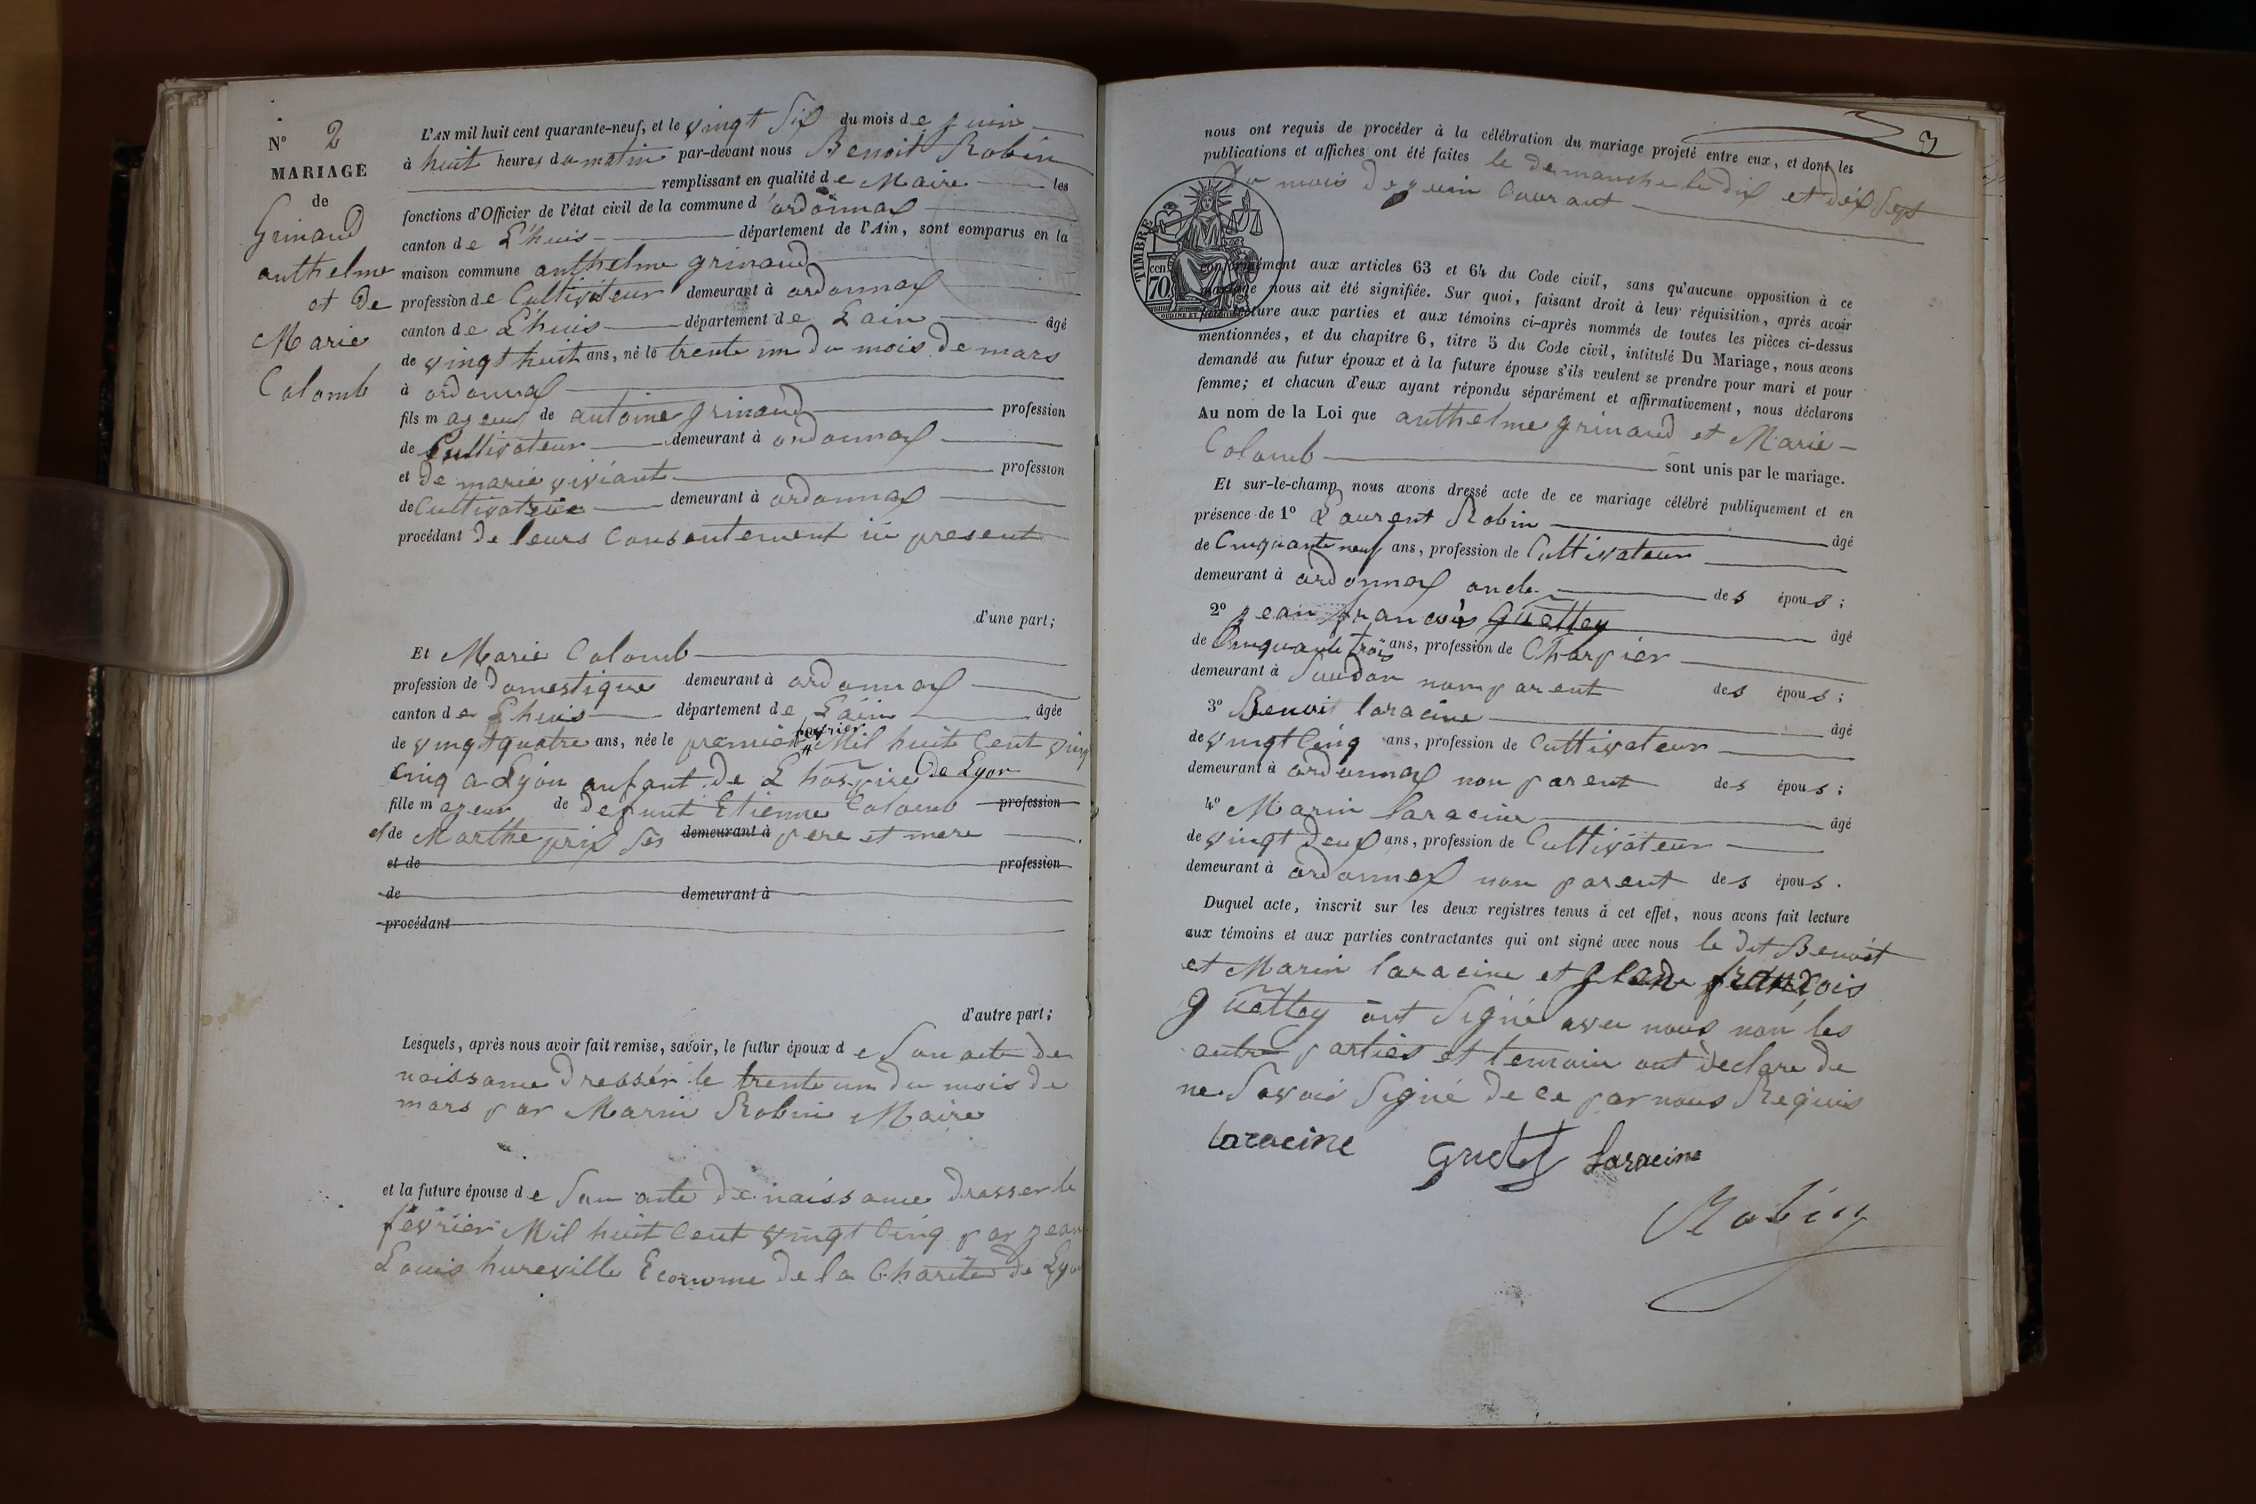 N° 2
MARIAGE
de
Grinand
anthelme
et de
Marie
Colomb
L'AN mil huit cent quarante-neuf, et le vingt six du mois de juin
à huit heures du matin par-devant nous Benoit Robin
remplissant en qualité de Maire les
fonctions d'Officier de l'état civil de la commune d'ordonnax
canton de L'huis département de l'Ain, sont comparus en la
maison commune anthelme grinand
profession de Cultivateur demeurant à ordonnax
canton de L'huis département de Lain âgé
de vingt huit ans, né le trente un du mois de mars
à ordonnax
fils mageur de antoine grinand profession
de Cultivateur demeurant à ordonnax
et de marie viviant profession
de Cultivatrice demeurant à ordonnax
procédant de leurs Consentement ici present
d'une part;
Et Marie Colomb
profession de domestique demeurant à ordonnax
canton de Lhuis département de Lain âgée
de vingt quatre ans, née le premier fevrier Mil huit Cent ving
Cinq a Lyon enfant de L'hospice de Lyon
fille mageur de defunt Etienne Colomb profession
et de Marthe prix ses demeurant à pere et mere
et de profession
de demeurant à
procédant
d'autre part;
Lesquels, après nous avoir fait remise, savoir, le futur époux de Son acte de
naissance dressér le trente un du mois de
mars par Marin Robin Maire
et la future épouse de Son acte de naissance dresser le
fevrier Mil huit Cent vingt Cinq par jean
Louis hureville Econome de la Charité de Lyon
3
nous ont requis de procéder à la célébration du mariage projeté entre eux, et dont les
publications et affiches ont été faites le demanche le dix et dix Sept
du mois de juin Courant
TIMBRE
cen
70
conformément aux articles 63 et 64 du Code civil, sans qu'aucune opposition à ce
mariage nous ait été signifiée. Sur quoi, faisant droit à leur réquisition, après avoir
fait lecture aux parties et aux témoins ci-après nommés de toutes les pièces ci-dessus
mentionnées, et du chapitre 6, titre 5 du Code civil, intitulé Du Mariage, nous avons
demandé au futur époux et à la future épouse s'ils veulent se prendre pour mari et pour
femme; et chacun d'eux ayant répondu séparément et affirmativement, nous déclarons
Au nom de la Loi que anthelme grinand et Marie
Colomb sont unis par le mariage.
Et sur-le-champ nous avons dressé acte de ce mariage célébré publiquement et en
présence de 1° Laurent Robin âgé
de Cinquante neuf ans, profession de Cultivateur
demeurant à ordonnax oncle des épous;
2° jean francois Guettey âgé
de Cinquante trois ans, profession de Charpier
demeurant à Soudon non parent des épous;
3° Benoit laracine âgé
de vingt Cinq ans, profession de Cultivateur
demeurant à ordonnax non parent des épous;
4° Marin laracine âgé
de vingt deux ans, profession de Cultivateur
demeurant à ordonnax non parent des épous.
Duquel acte, inscrit sur les deux registres tenus à cet effet, nous avons fait lecture
aux témoins et aux parties contractantes qui ont signé avec nous le dit Benoit
et Marin laracine et françois
guettey ont Signé avec nous non les
autre parties et temoin ont déclare de
ne Savoir Signé de ce par nous Requis
laracine Guettey Laracine
Robin